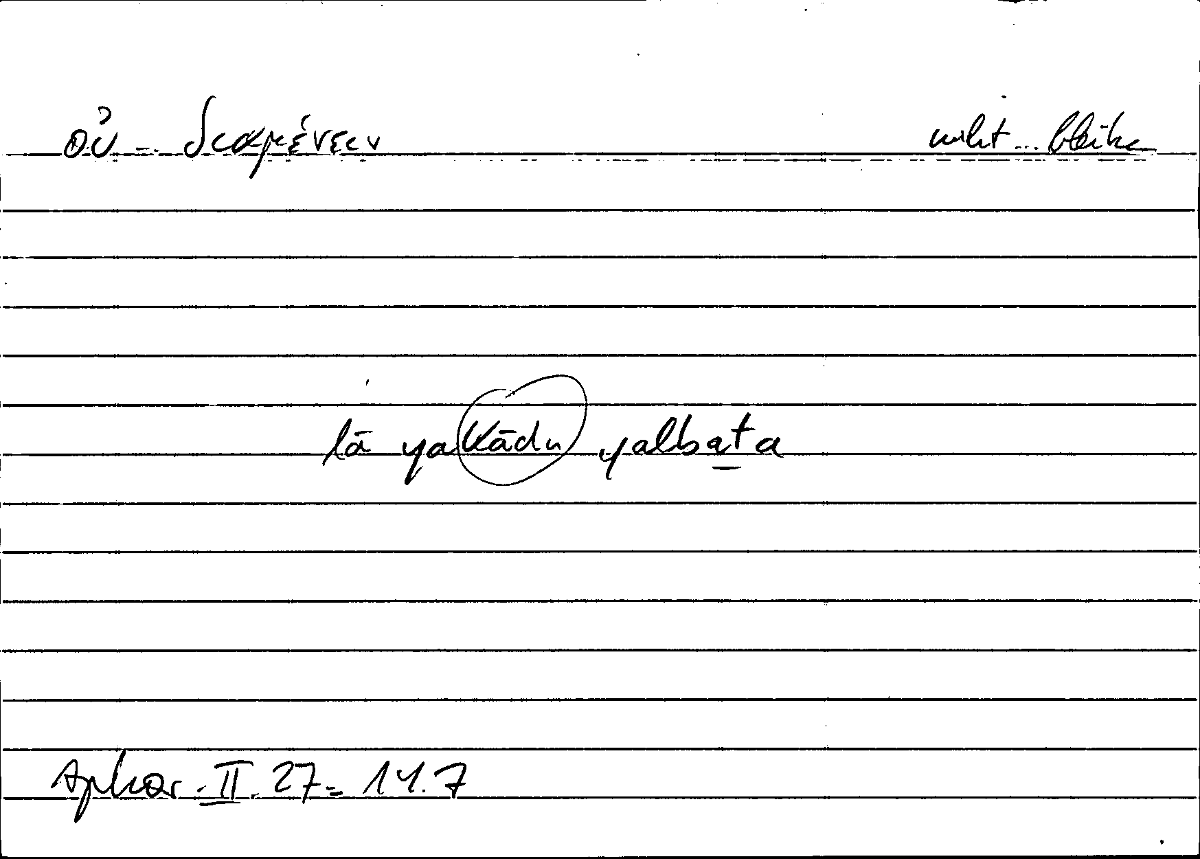 οὐ - διαμένειν nicht ... bleiben
lā yakādu yalbaṯa
Aphor. II. 27 = 14.7